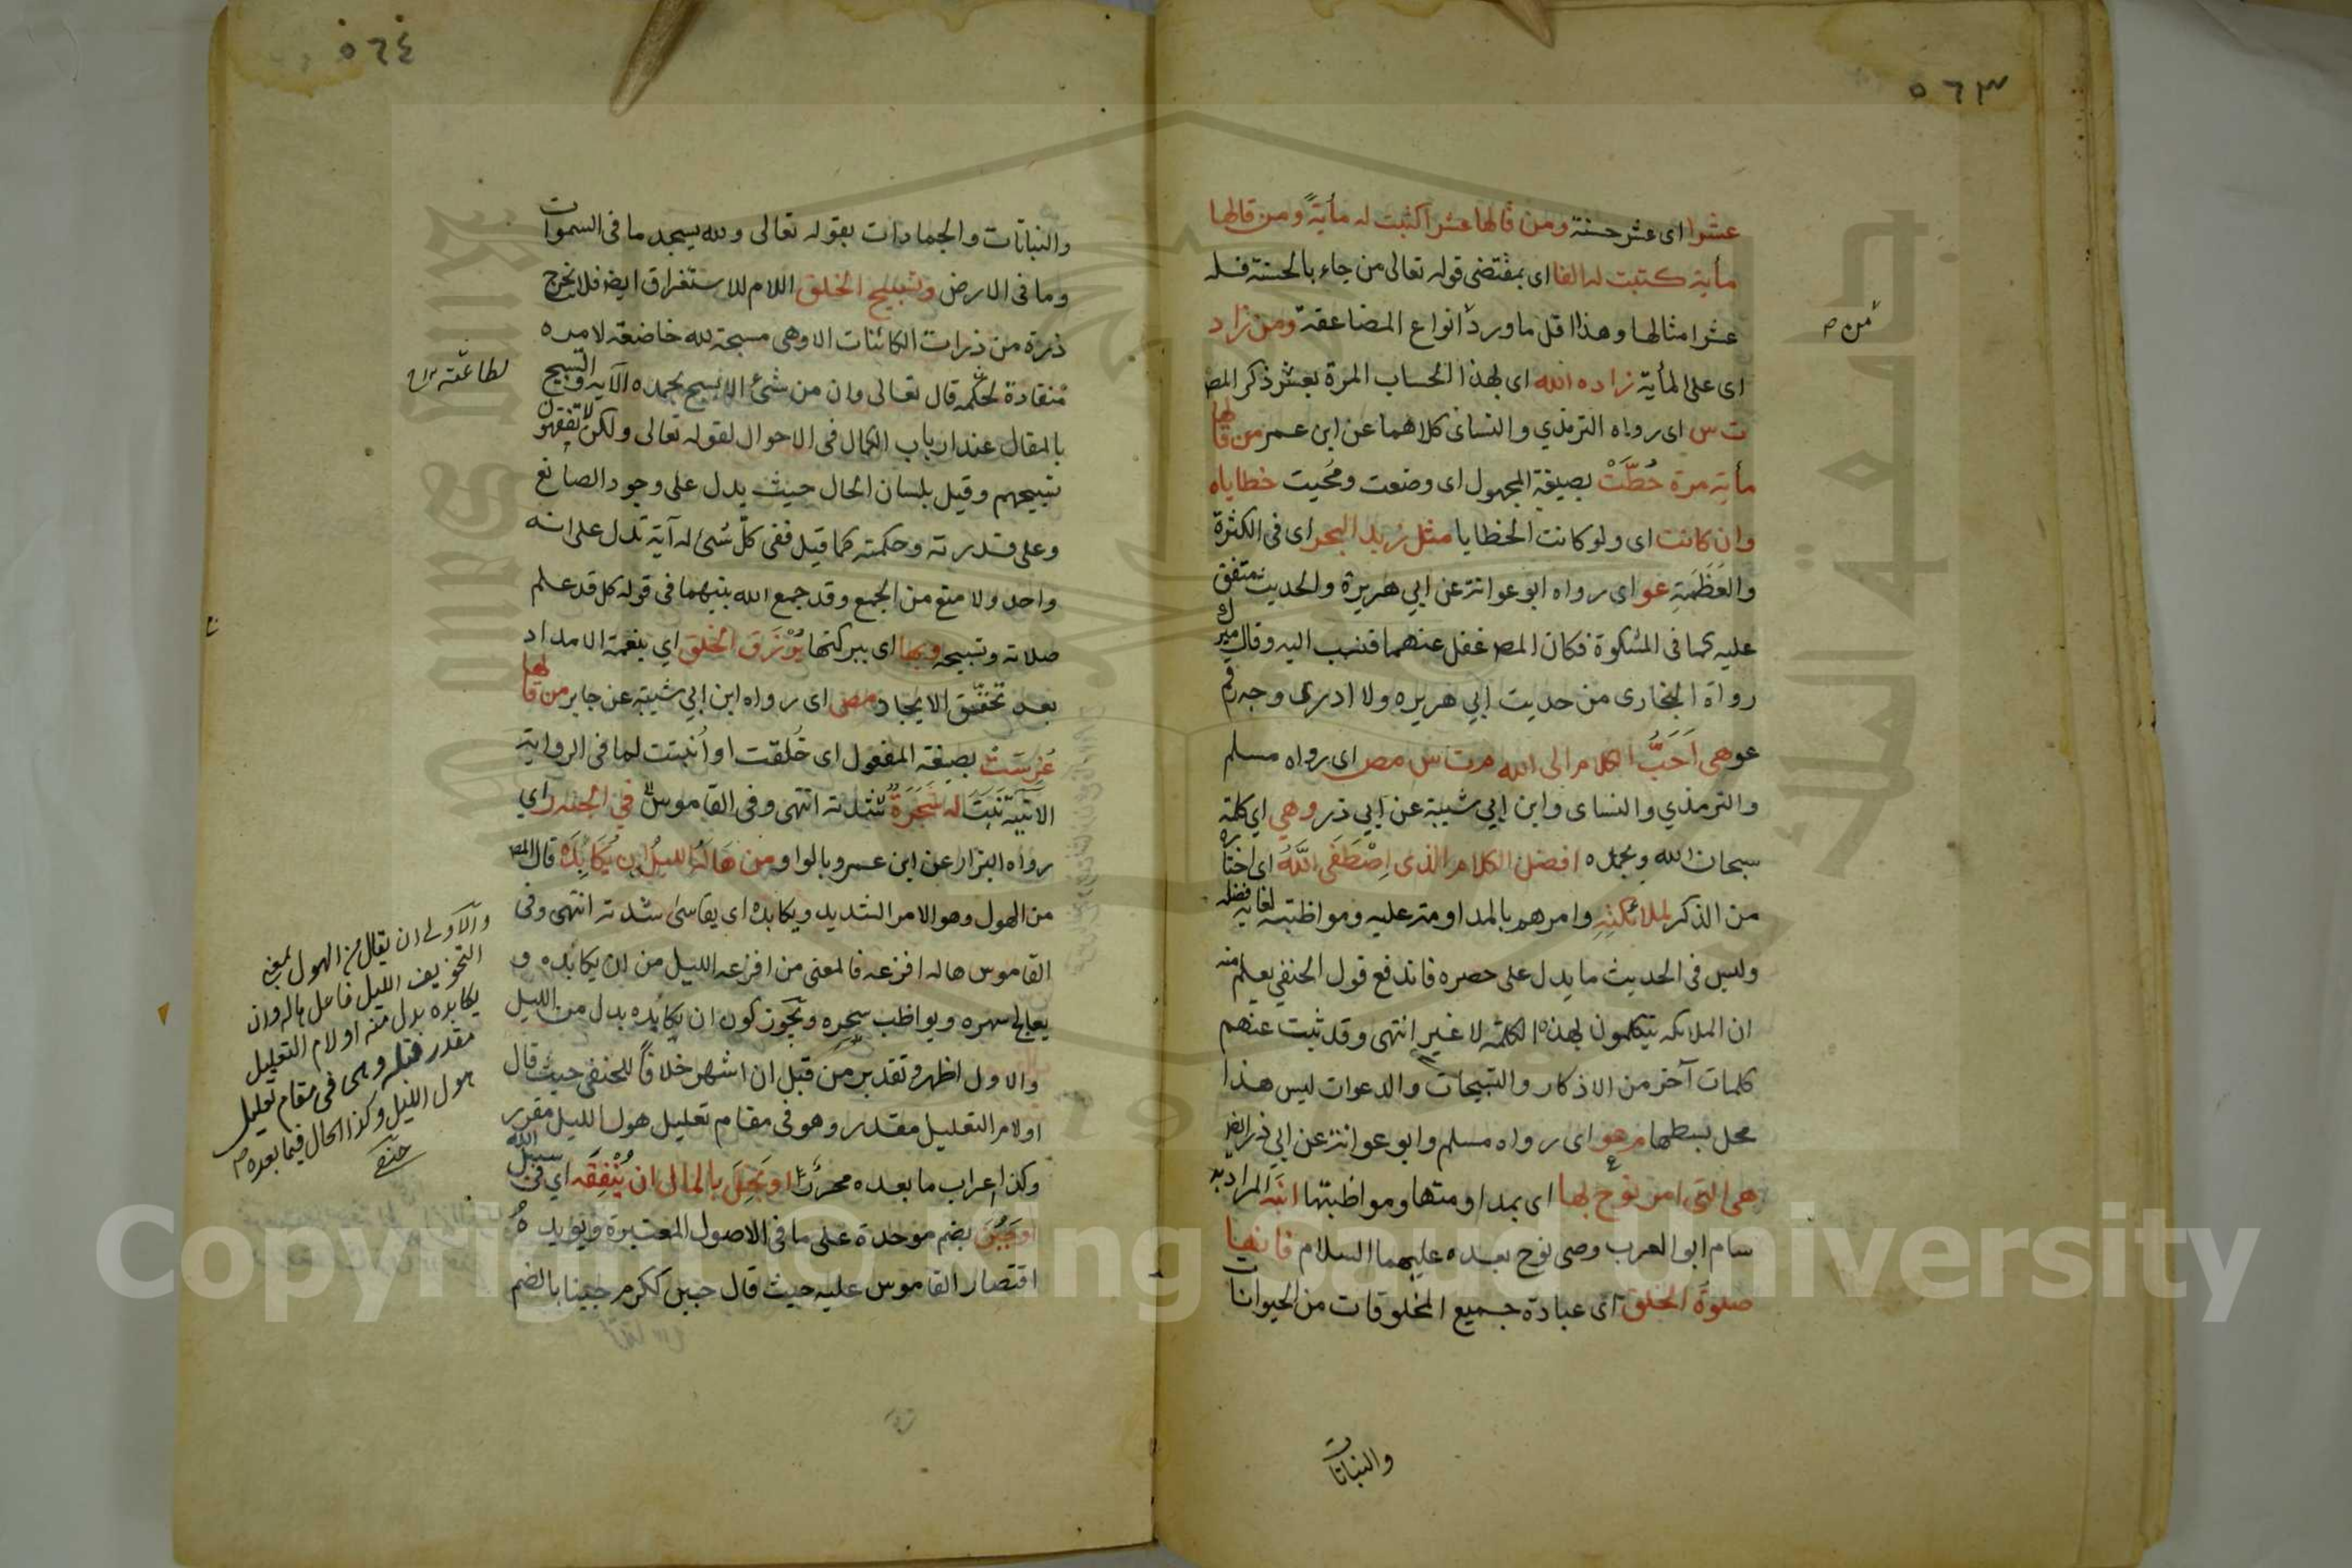 ٥٦٣
عشرا اى عشر حسنة ومن قالها عشرا كتبت له مأية ومن قالها
مأية كتبت له الفا اى بمقتضى قوله تعالى من جاء بالحسنة فله
عشر امثالها وهذا اقل ما ورد انواع المضاعفة ومن زاد
من
اى على المأية زاده الله اى بهذا الحساب المرة بعشر ذكر المص
ت س اى رواه الترمذي والنسائى كلاهما عن ابن عمر من قالها
مأية مرة حُطَّتْ بصيغة المجهول اى وضعت ومُحيت خطاياه
وان كانت اى ولو كانت الخطايا مثل زبد البحر اى فى الكثرة
والعَظَمَةِ عو اى رواه ابو عوانة عن ابي هريرة والحديث متفق
عليه كما فى المشكوة فكان المص غفل عنهما فنسب اليه وقال ميرك
رواه البخارى من حديث ابي هريره ولا ادرى وجه رقم
عو هى اَحَبُّ الكلام الى الله م ت س مص اى رواه مسلم
والترمذي والنساى وابن ابي شيبة عن ابي ذر وهي اي كلمة
سبحان الله وبحمده افضل الكلام الذى اِصْطَفَى اللَّهُ اى اختاره
من الذكر لملائكتِهِ وامرهم بالمداومة عليه ومواظبته لغاية فضله
وليس فى الحديث ما يدل على حصره فاندفع قول الحنفي يعلم منه
ان الملائكه يتكلمون بهذه الكلمة لا غير انتهى وقد ثبت عنهم
كلمات آخر من الاذكار والتسبيحات والدعوات ليس هذا
محل بسطها م عو اى رواه مسلم وابو عوانة عن ابي ذر ايض
هى التى امر نوح بها اى بمداومتها ومواظبتها ابنَه المراد به
سام ابو العرب وصى نوح بعده عليهما السلام فانها
صلوة الخلق اى عبادة جميع المخلوقات من الحيوانات
والنباتات
٥٦٤
والنباتات والجمادات بقوله تعالى ولله يسجد ما فى السموات
وما فى الارض وتسبيح الخلق اللام للاستغراق ايض فلا يخرج
ذرة من ذرات الكائنات الا وهى مسبحة لله خاضعة لامره
منقادة لحكمه قال تعالى وان من شئ الا يسبح بحمده الآية والتسبيح
بالمقال عند ارباب الكمال فى الاحوال لقوله تعالى ولكن لا تفقهون
تسبيحهم وقيل بلسان الحال حيث يدل على وجود الصانع
وعلى قدرته وحكمته كما قيل ففى كلّ شئ له آية تدل على انه
واحد ولا منع من الجمع وقد جمع الله بينهما فى قوله كل قد علم
صلاته وتسبيحه وبها اى ببركتها يُرْزَق الخلق اي بنعمة الامداد
بعد تحقّق الايجاد مص اى رواه ابن ابي شيبة عن جابر من قالها
غُرِسَتْ بصيغة المفعول اى خُلقت او اُنبتت لما فى الرواية
الاتية نَبَتَ له شَجَرَةٌ مثلثة انتهى وفى القاموس فى الجنة ر اي
رواه البزار عن ابن عمرو بالواو من هَالَهُ الليلُ ان يُكَابِدَهُ قال المص
من الهول وهو الامر الشديد ويكابده اى يقاسى شدته انتهى وفى
القاموس هاله افزعه فالمعنى من افزعه الليل من ان يكابده و
يعالج سهره ويواظب سحره ويجوز كون ان يكابده بدل من الليل
والاول اظهر وتقدير من قبل ان اشهر خلافًا للحنفى حيث قال
او لام التعليل مقدر وهو فى مقام تعليل هول الليل مقرر
وكذا اعراب ما بعده محرر او بَخِلَ بالمال ان يُنْفِقَه اي فى سبيل الله
او جَبُنَ بضم موحدة على ما فى الاصول المعتبرة ويؤيده
اقتصار القاموس عليه حيث قال جبن ككرم جبنا بالضم
لطاعته
والاولى ان يقال من الهول بمعنى
التخويف الليل فاعل هاله وان
يكابده بدل منه او لام التعليل
مقدر قبله وهى فى مقام تعليل
هول الليل وكذا الحال فيما بعده
حنفى
Copyright © King Saud University